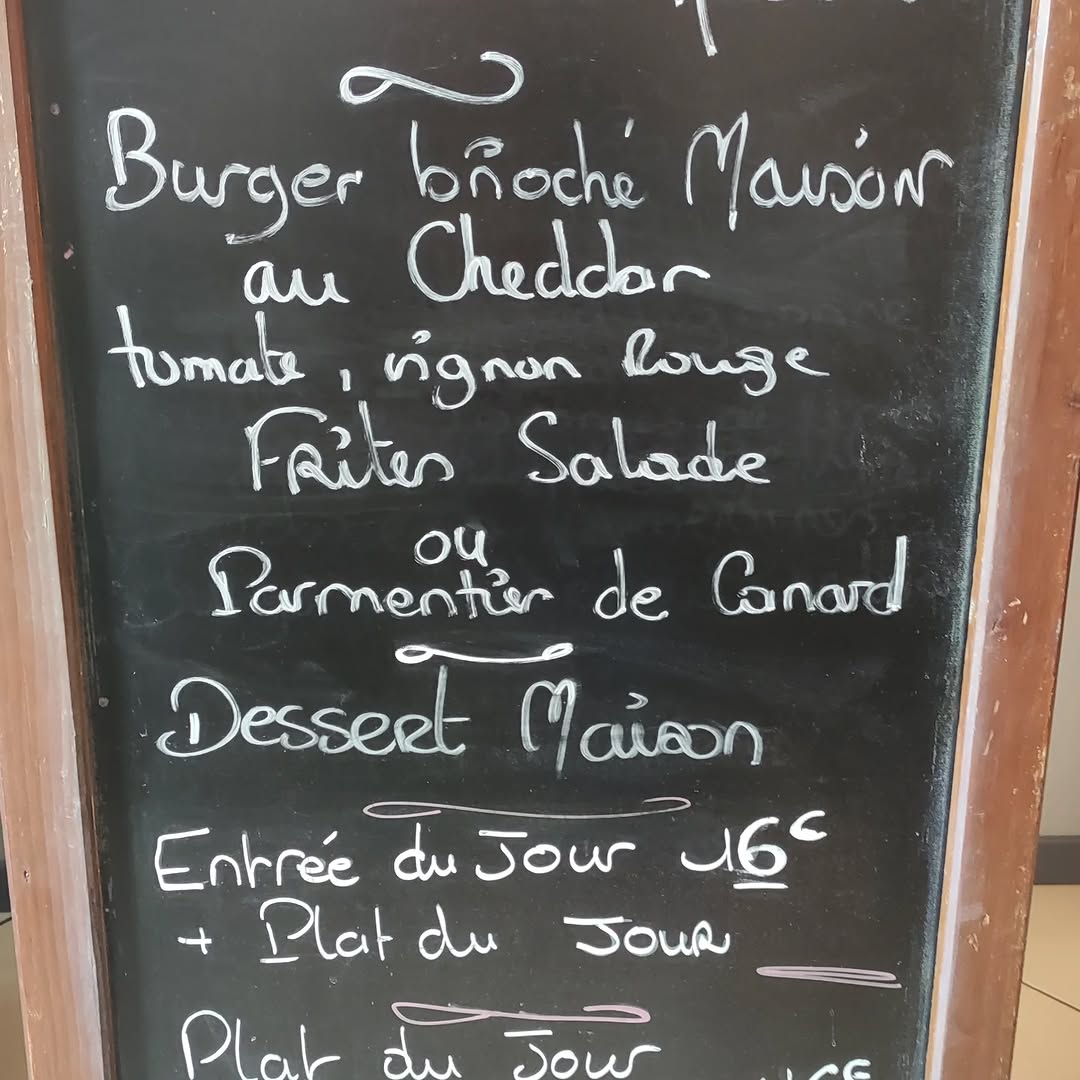 Burger brioché Maison
au Cheddar
tomate, oignon Rouge
Frites Salade
ou
Parmentier de Canard
Dessert Maison
Entrée du Jour 16€
+ Plat du Jour
Plat du Jour